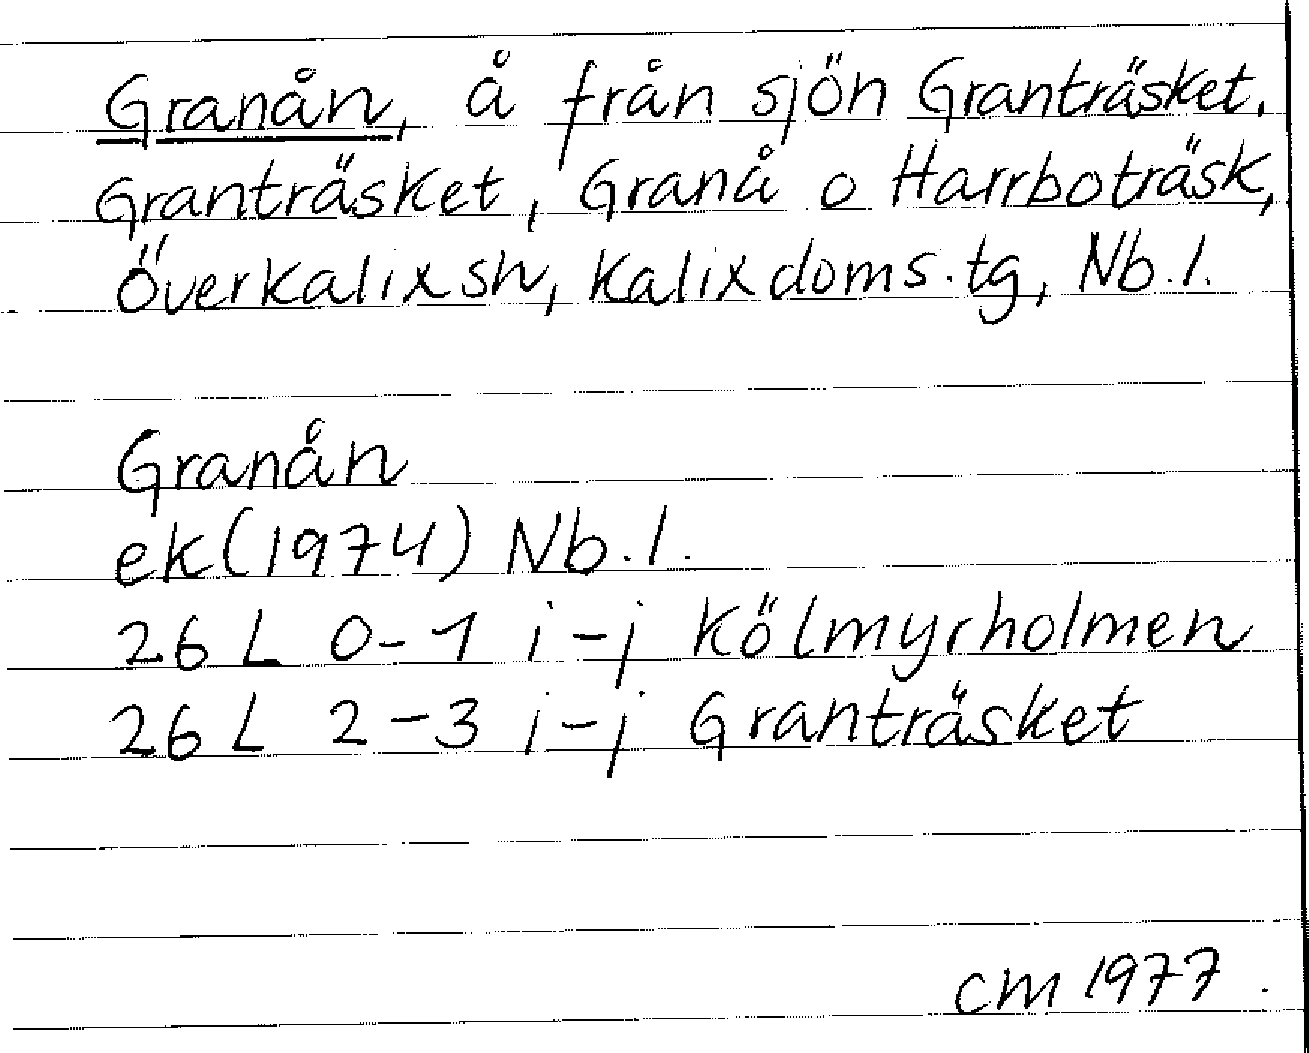 Granån, å från sjön Granträsket.
Granträsket, Granå o Harrboträsk,
Överkalix sn, Kalix doms.tg, Nb.l.
Granån
ek (1974) Nb.l.
26 L 0-1 i-j Kölmyrholmen
26 L 2-3 i-j Granträsket
CM 1977.